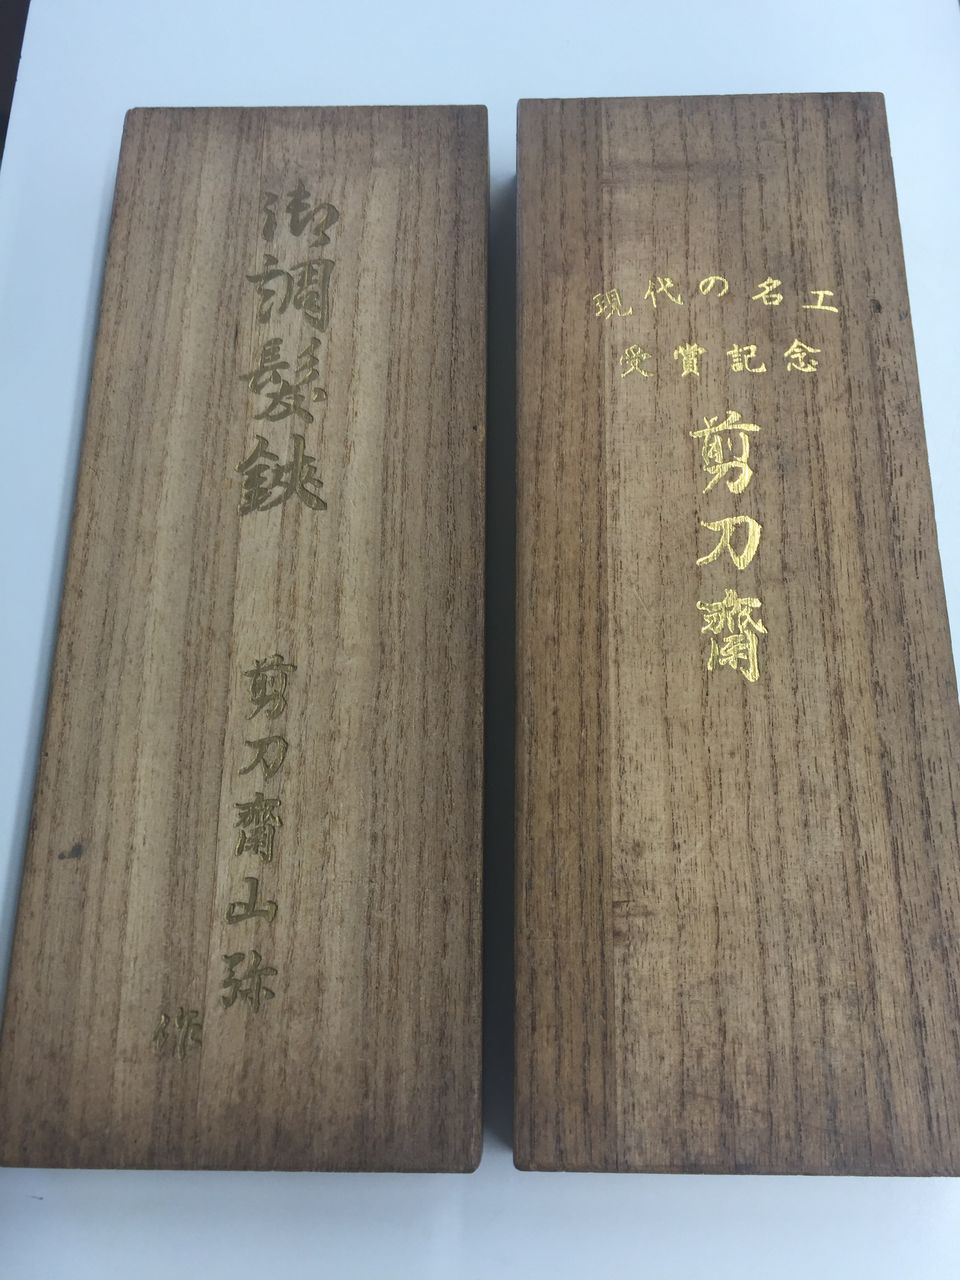 御調髪鋏
剪刀齋山弥
作
現代の名工
受賞記念
剪刀齋